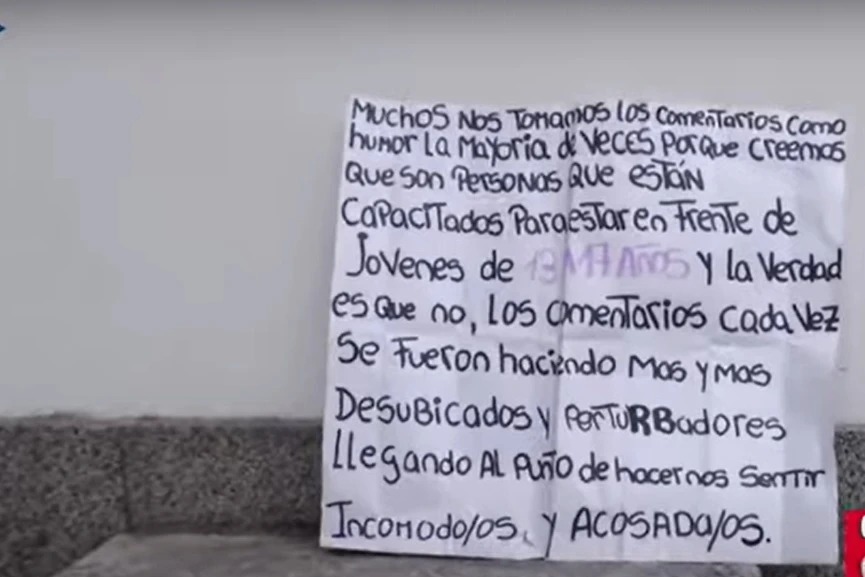 MUCHOS NOS TOMAMOS LOS COMENTARIOS COMO
HUMOR LA MAYORIA de VECES PORQUE CREEMOS
QUE SON PERSONAS QUE ESTÁN
CAPACITADOS PARA ESTAR EN FRENTE de
JOVENES de 13 A 17 AÑOS Y la VERDAD
es QUE no, LOS COMENTARIOS CADA VEZ
SE FUERON haciENDO MAS Y MAS
DESUBICADOS Y PERTURBADORES
LLEGANDO AL PUÑTO de hacernos SENTIR
INCOMODO/OS, Y ACOSADA/OS.